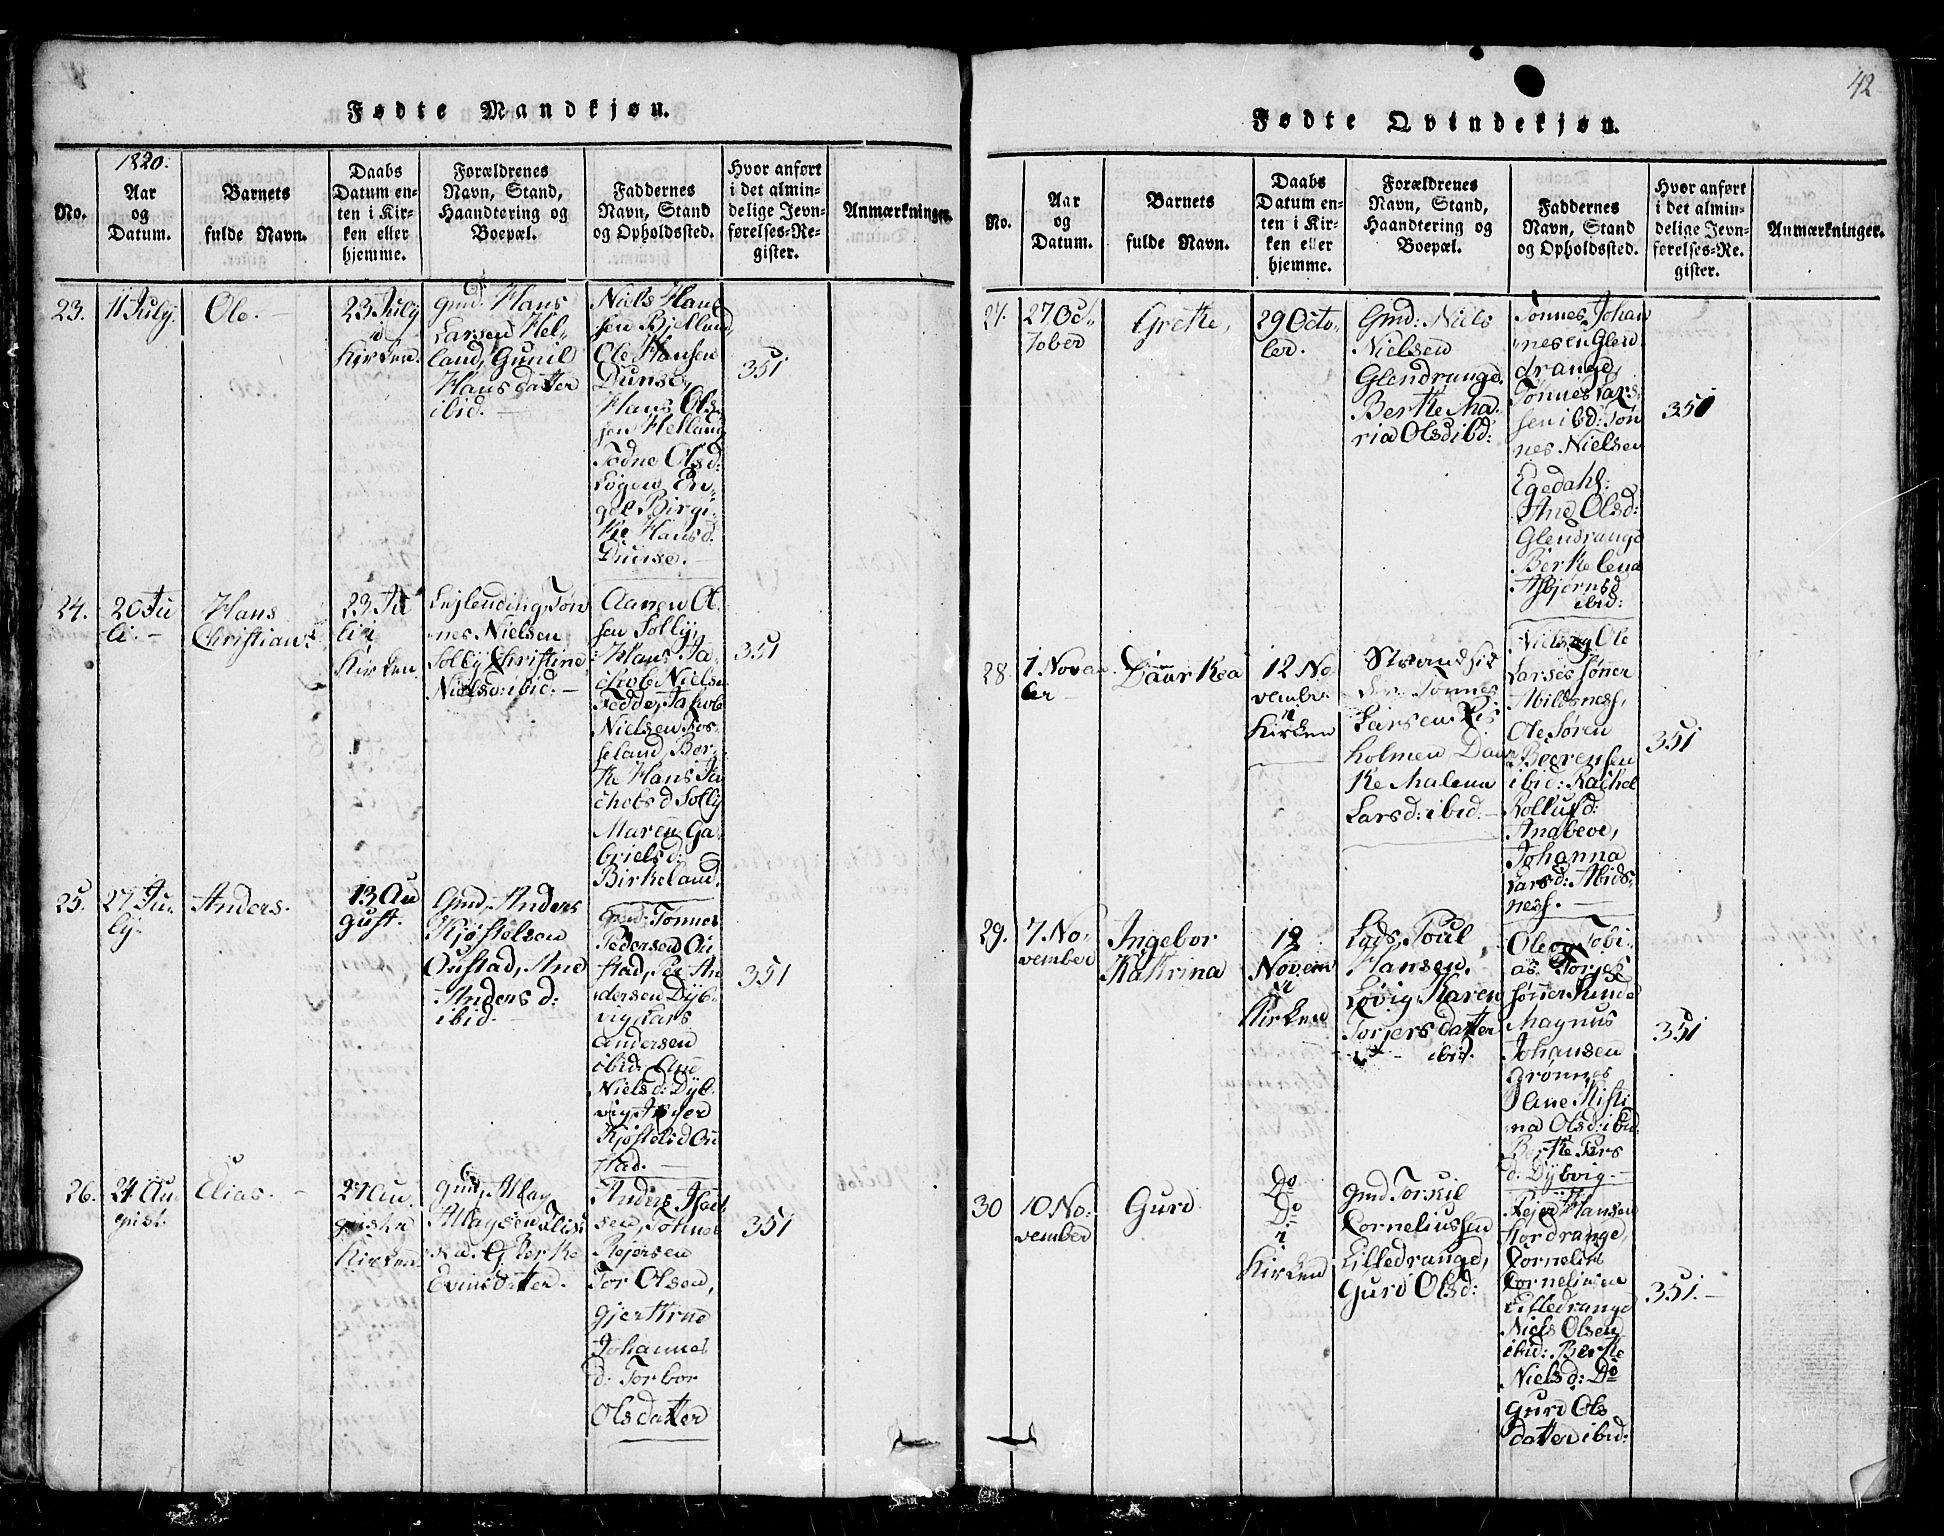 42
Fødte Mandkjøn.
1820.
No.
Aar
og
Datum.
Barnets
fulde Navn.
Daabs
Datum en-
ten i Kir-
ken eller
hjemme.
Forældrenes
Navn, Stand,
Haandtering og
Boepæl.
Faddernes
Navn, Stand
og Opholdssted.
Hvor anført
i det almin-
delige Jevn-
førelses-Re-
gister.
Anmærkninger.
23.
11 July.
Ole.
23 July
i
Kirken
gmd. Hans
Larsen Hel-
land, Gunil
Hans datter
ibid.
Niels Han
sen Bjelland
Ole Hansen
Dunse,
Hans Ols-
sen Helland
Todne Olsd:
Løgen En-
gel Birgi-
te Hansd.
Dunse.
351
24.
20 Ju
li.
Hans
Christian
23 Ju
li i
Kirken
Lejlending Tøn
nes Nielsen
Solly Christine
Nielsd: ibid:
Aanen Ol
sen Solly,
Hans Ja-
chob Nielsen
Fedde, Jakob
Nielsen Fos-
seland Ber-
te Hans Ja
chobs d Solly
Maren Ga-
brielsd:
Birkeland.
351
25.
27 Ju-
ly.
Anders.
13 Au
gust.
Gmd. Anders
Kjøstelsen
Oustad, Ane
Anders d:
ibid.
Gmd: Tønnes
Pedersen Ou
stad, Per An
dersen Dyb-
vig, Lars
Andersen
ibid: Ane
Niels d: Dyb-
vig, Inger
Kjøstelsd Ou
stad.
351
26.
24 Au
gust.
Elias.
27 Au-
gust i
Kirken
gmd. Aa
Berte
Evinsdatter.
Anders
sen, Tønnes
Rejersen
Tor Olsen,
gjertrud
Johannes
d: Torbor
Olsdatter
351
Fødte Qvindekjøn.
No.
Aar
og
Datum.
Barnets
fulde Navn.
Daabs
Datum en-
ten i Kir-
ken eller
hjemme.
Forældrenes
Navn, Stand,
Haandtering og
Boepæl.
Faddernes
Navn, Stand
og Opholdssted.
Hvor anført
i det almin-
delige Jevn-
førelses-Re-
gister.
Anmærkninger.
27.
27 Oc-
tober
Grethe,
29 Octo-
ber.
Gmd: Niels
Nielsen
Glendrange.
Berte Ma-
ria Olsd ibd:
Tønnes Johan
nesen Glen
drange,
Tønnes Lars-
sen ibd: Tøn
nes Nielsen
Egedahl:
Ane Olsd:
Glendrange
Berte Lena
Asbjørnsd
ibid:
351
28.
1 Novem
ber
Daarthea
12 No-
vember
i
Kirken
Strandsid
der Tønnes
Larsen Ris
holmen Daar
the Malena
Larsd: ibid.
Niels og Ole
Larses sønner
Abildsnes,
Ole Søren
Beerensen
ibid: Rachel
Rolluf d:
Anabeve,
Johanna
Larsd: Abids-
nes.
351
29.
7 No-
vember
Ingebor
Kattrina
12
Novem
i
Kirken
Lods, Poul
Hansen,
Løvig Karen
Torjers datter
ibid.
Ole og Tobi-
as Torjes
sønner Runde
Magnus
Johansen
Grønnes
Jane Kisti
na Olsd: ibid
Berte Pers
d. Dybvig
351
30
10 No-
vember
Gurd
Do
Do
i
Kirken
gmd Torkil
Corneliussen
Lilledrange,
Gurd Olsd:
Rejer Hansen
Hordrange,
Cornelius
Corneliusen
Lilledrange
Niels Olsen
ibid: Berte
Niels d: Do
Gurd Ols
datter ibid:
351.